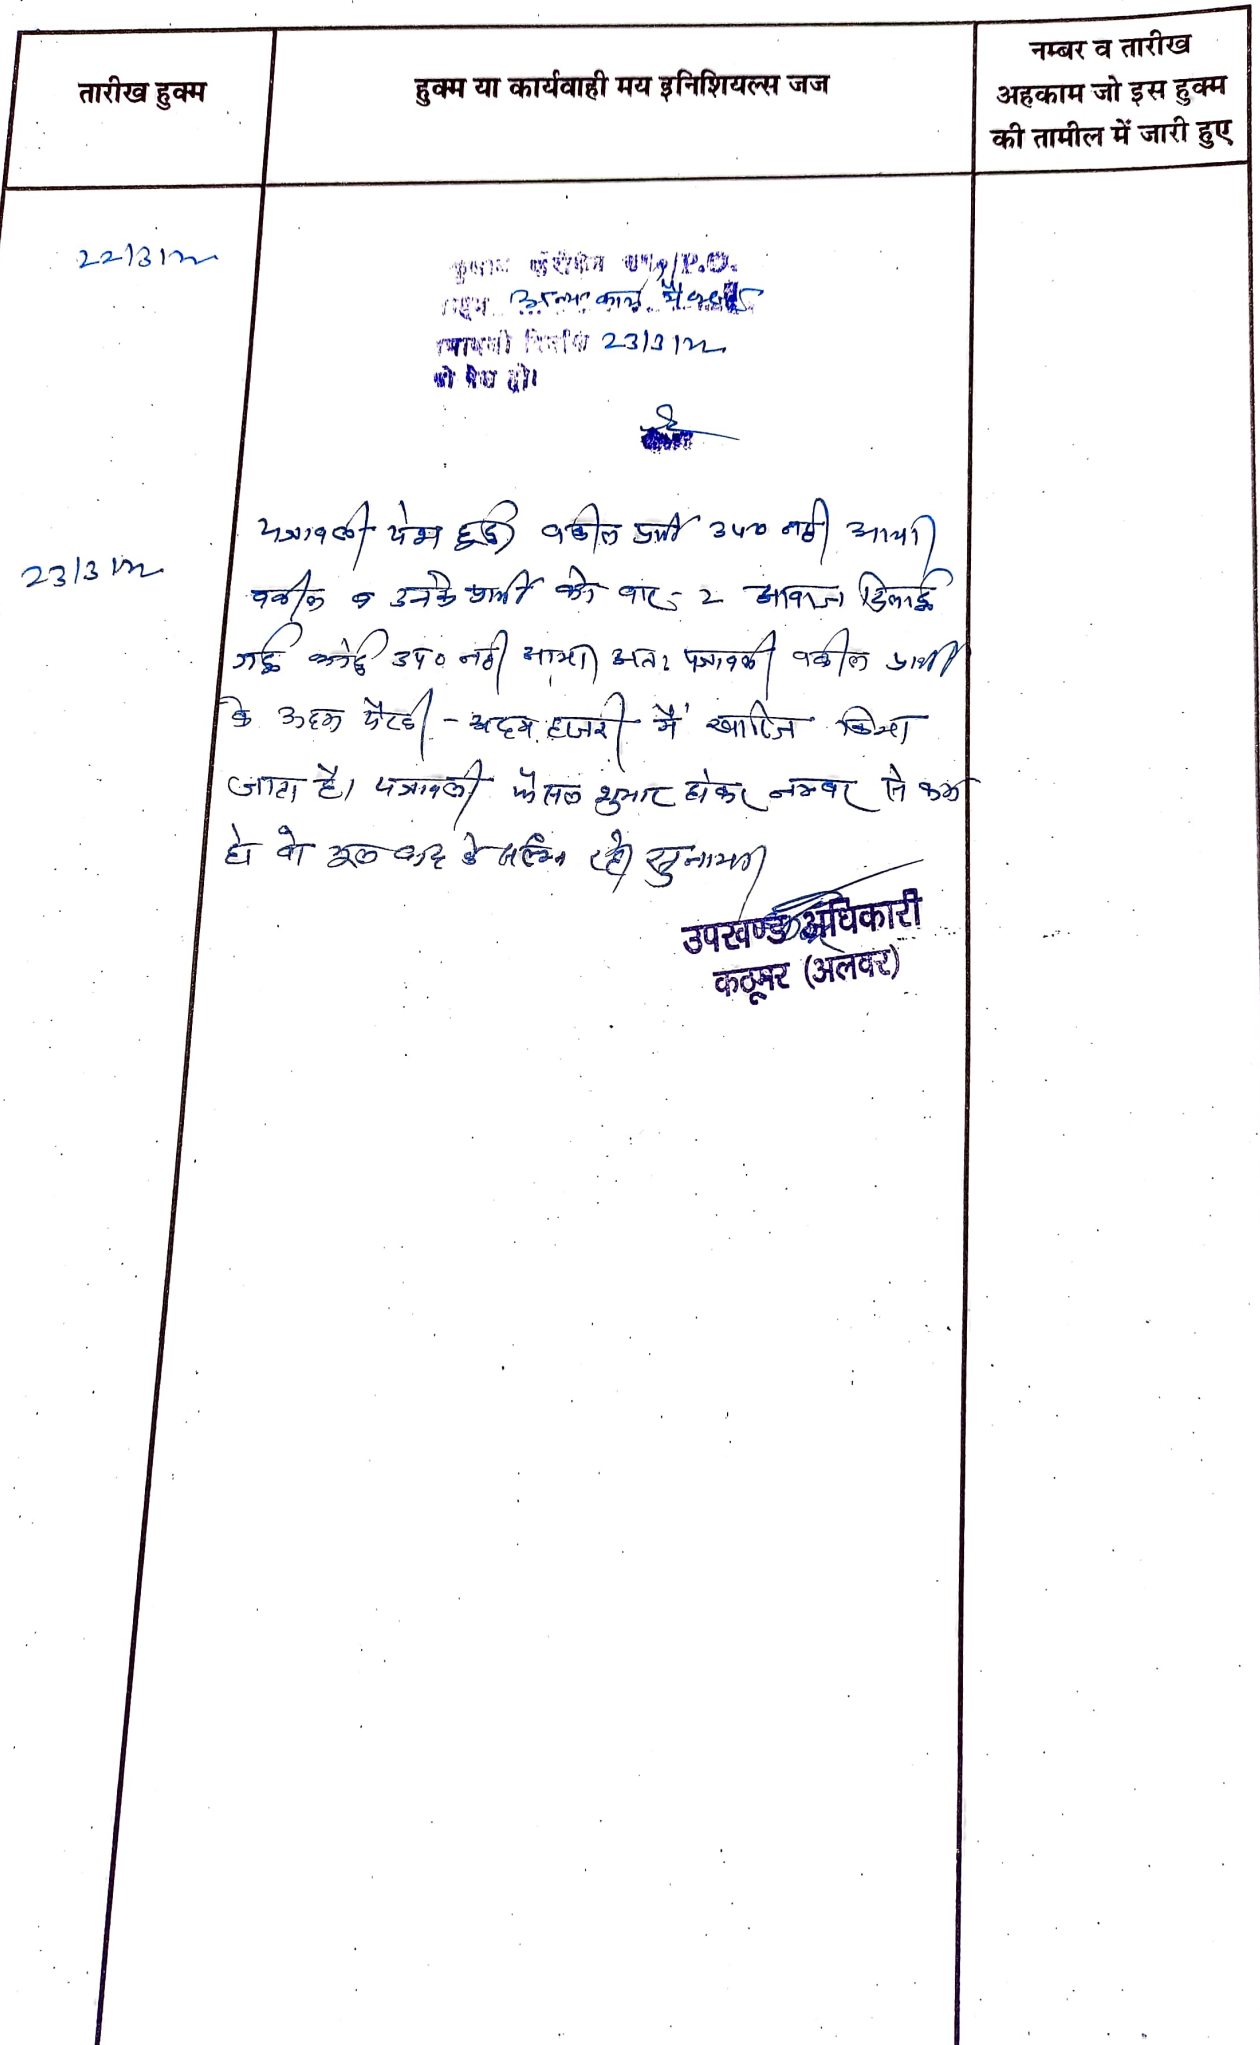 तारीख हुक्म
हुक्म या कार्यवाही मय इनिशियल्स जज
नम्बर व तारीख
अहकाम जो इस हुक्म
की तामील में जारी हुए
22/3/22
P.O.
अन्य कार्य में
23/3/22
को पेश हो।
23/3/22
पत्रावली पेश हुई। वकील प्रार्थी उप० नहीं आया।
वकील व उनके प्रार्थी को बार-2 आवाज दिलाई
गई कोई उप० नहीं आया। अतः पत्रावली वकील प्रार्थी
के अदम पैरवी - अदम हाजरी में खारिज किया
जाता है। पत्रावली फैसल शुमार होकर नम्बर से कम
हो मूल वाद के रहे। सुनाया।
उपखण्ड अधिकारी
कठूमर (अलवर)